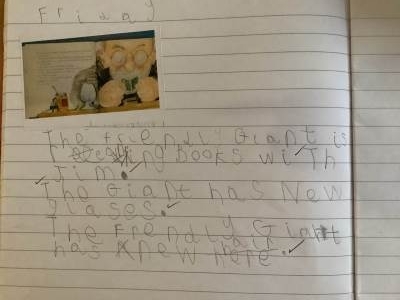 Friday
The friendly Giant is
reading books with
Jim.
The Giant has New
glases.
The Frendly Giant
has knew here.